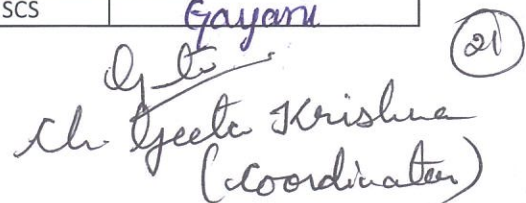 SCS Gayani
21
Ch. Geeta Krishna
(Coordinator)